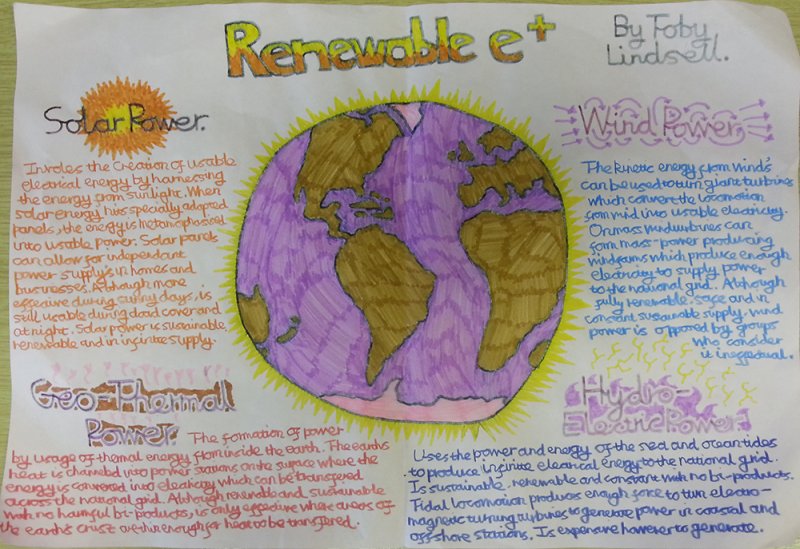 Renewable e+
By Toby
Lindsell.
Solar Power.
Involes the creation of usable
electrical energy by harnessing
the energy from sunlight. When
solar energy hits specially adapted
panels, the energy is metamorphosised
into usable power. Solar panels
can allow for independant
power supplys in homes and
businesses. Although more
effective during sunny days, is
still usable during cloud cover and
at night. Solar power is sustainable,
renewable and in infinite supply.
Wind Power.
The kinetic energy from winds
can be used to turn giant turbines
which convert the locomotion
from mid into usable electricity.
On mass windturbines can
form mass-power producing
windfarms which produce enough
electricity to supply power
to the national grid. Although
fully renewable, safe and in
constant sustainable supply, wind
power is opposed by groups
who consider
it ineffectual.
Geo-Thermal
Power.
The formation of power
by usage of thermal energy from inside the earth. The earths
heat is channeled into power stations on the surface where the
energy is converted into elecricity which can be transfered
across the national grid. Although renewable and sustainable
with no harmful bi-products, is only effective where areas of
the earth's crust are thin enough for heat to be transfered.
Hydro-
Electric Power.
Uses the power and energy of the sea and ocean tides
to produce infinite electrical energy to the national grid.
Is sustainable, renewable and constant with no bi-products.
Tidal locomotion produces enough force to turn electro-
magnetic turning turbines to generate power in coastal and
off-shore stations. Is expensive however to generate.